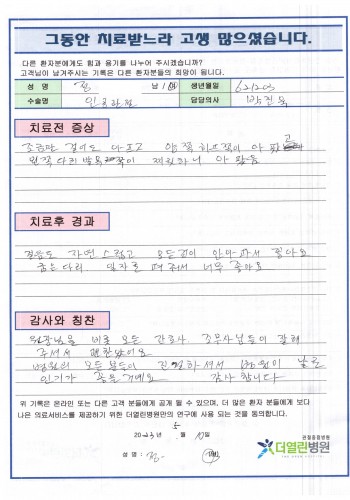 그동안 치료받느라 고생 많으셨습니다.
다른 환자분에게도 힘과 용기를 나누어 주시겠습니까?
고객님이 남겨주시는 기록은 다른 환자분들의 희망이 됩니다.
성 명 전 남 / 여 생년월일 621203
수술명 인공관절 담당의사 박진욱
치료전 증상
조금만 걸어도 아프고 양쪽 허브쪽이 아팠고
왼쪽 다리 쪽이 아팠음
치료후 경과
걸음도 자연스럽고 모든것이 안아파서 좋아요
굽은다리 일자로 펴줘서 너무 좋아요
감사와 칭찬
원장님을 비롯 모든 간호사 조무사님들이 잘해
주셔서 편했어요
병원의 모든분들이 친절하셔서 병원이 날로
인기가 좋을거예요 감사합니다
위 기록은 온라인 또는 다른 고객 분들에게 공개 될 수 있으며, 더 많은 환자 분들에게 보다
나은 의료서비스를 제공하기 위한 더열린병원만의 연구에 사용 되는 것을 동의합니다.
2023. 5. 17일
성 명 : 전 (인)
관절중점병원
더열린병원